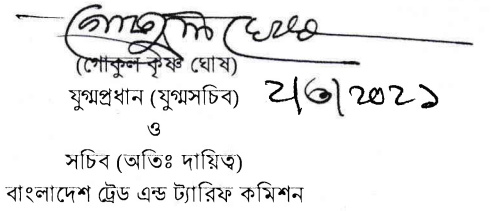 (গোকুল কৃষ্ণ ঘোষ)
যুগ্মপ্রধান (যুগ্মসচিব) ২/৩/২০২১
ও
সচিব (অতিঃ দায়িত্ব)
বাংলাদেশ ট্রেড এন্ড ট্যারিফ কমিশন